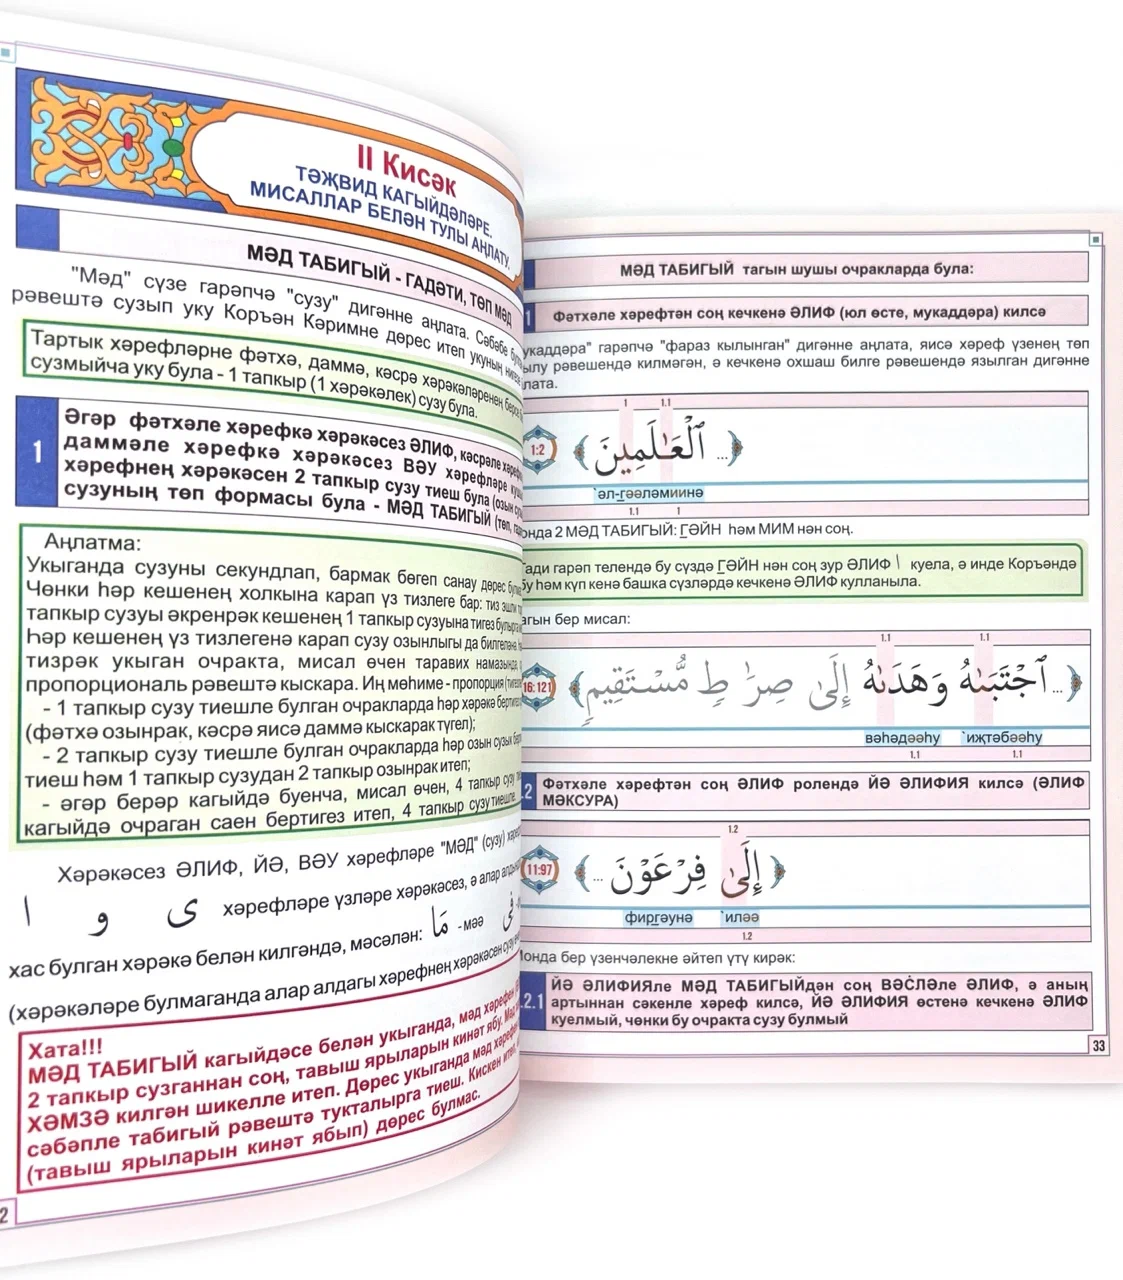 II Кисәк
ТӘҖВИД КАГЫЙДӘЛӘРЕ.
МИСАЛЛАР БЕЛӘН ТУЛЫ АҢЛАТУ.
МӘД ТАБИГЫЙ - ГАДӘТИ, ТӨП МӘД
"Мәд" сүзе гарәпчә "сузу" дигәнне аңлата. Сәбәбе
рәвештә сузып уку Коръән Кәримне дөрес итеп укуның
Тартык хәрефләрне фәтхә, даммә, кәсрә хәрәкәләренең
сузмыйча уку була - 1 тапкыр (1 хәрәкәлек) сузу була.
1
Әгәр фәтхәле хәрефкә хәрәкәсез ӘЛИФ, кәсрәле
даммәле хәрефкә хәрәкәсез ВӘУ хәрефләре
хәрефнең хәрәкәсен 2 тапкыр сузу тиеш була (озын
сузуның төп формасы була - МӘД ТАБИГЫЙ (төп,
Аңлатма:
Укыганда сузуны секундлап, бармак бөгеп санау дөрес
Чөнки һәр кешенең холкына карап үз тизлеге бар: тиз
тапкыр сузуы әкренрәк кешенең 1 тапкыр сузуына тигез
Һәр кешенең үз тизлегенә карап сузу озынлыгы да
тизрәк укыган очракта, мисал өчен таравих намазында,
пропорциональ рәвештә кыскара. Иң мөһиме - пропорция
- 1 тапкыр сузу тиешле булган очракларда һәр хәрәкә
(фәтхә озынрак, кәсрә яисә даммә кыскарак түгел);
- 2 тапкыр сузу тиешле булган очракларда һәр озын сузык
тиеш һәм 1 тапкыр сузудан 2 тапкыр озынрак итеп;
- әгәр берәр кагыйдә буенча, мисал өчен, 4 тапкыр сузу
кагыйдә очраган саен бертигез итеп, 4 тапкыр сузу тиешле.
Хәрәкәсез ӘЛИФ, ЙӘ, ВӘУ хәрефләре "МӘД" (сузу)
ا و ى хәрефләре үзләре хәрәкәсез, ә алар
хас булган хәрәкә белән килгәндә, мәсәлән: مَا - мәә فِى
(хәрәкәләре булмаганда алар алдагы хәрефнең хәрәкәсен сузу
Хата!!!
МӘД ТАБИГЫЙ кагыйдәсе белән укыганда, мәд хәрефен
2 тапкыр сузганнан соң, тавыш ярыларын кинәт ябу.
ХӘМЗӘ килгән шикелле итеп. Дөрес укыганда мәд
сәбәпле табигый рәвештә тукталырга тиеш. Кискен итеп,
(тавыш ярыларын кинәт ябып) дөрес булмас.
2
МӘД ТАБИГЫЙ тагын шушы очракларда була:
1 Фәтхәле хәрефтән соң кечкенә ӘЛИФ (юл өсте, мукаддәра) килсә
укаддәра" гарәпчә "фараз кылынган" дигәнне аңлата, яисә хәреф үзенең төп
ылу рәвешендә килмәгән, ә кечкенә охшаш билге рәвешендә язылган дигәнне
лата.
1 1.1
1:2 ﴿ ٱلْعَـٰلَمِينَ ... ﴾
`әл-гәәләмиинә
1.1 1
онда 2 МӘД ТАБИГЫЙ: ГӘЙН һәм МИМ нән соң.
ади гарәп телендә бу сүздә ГӘЙН нән соң зур ӘЛИФ ا куела, ә инде Коръәндә
бу һәм күп кенә башка сүзләрдә кечкенә ӘЛИФ кулланыла.
агын бер мисал:
1.1 1.1
16:121 ﴿ ... ٱجْتَبَـٰهُ وَهَدَىٰهُ إِلَىٰ صِرَٰطٍ مُّسْتَقِيمٍ ﴾
вәһәдәәһу `иҗтәбәәһу
1.1 1.1
.2 Фәтхәле хәрефтән соң ӘЛИФ ролендә ЙӘ ӘЛИФИЯ килсә (ӘЛИФ
МӘКСУРА)
1.2
11:97 ﴿ إِلَىٰ فِرْعَوْنَ ... ﴾
фиргәунә `иләә
1.2
онда бер үзенчәлекне әйтеп үтү кирәк:
.2.1 ЙӘ ӘЛИФИЯле МӘД ТАБИГЫЙдән соң ВӘСЛәле ӘЛИФ, ә аның
артыннан сәкенле хәреф килсә, ЙӘ ӘЛИФИЯ өстенә кечкенә ӘЛИФ
куелмый, чөнки бу очракта сузу булмый
33